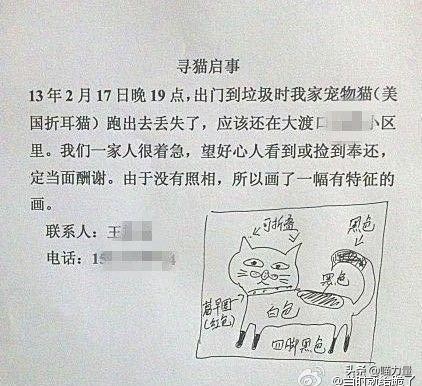 寻猫启事
13 年 2 月 17 日晚 19 点，出门到垃圾时我家宠物猫（美
国折耳猫）跑出去丢失了，应该还在大渡口 小区
里。我们一家人很着急，望好心人看到或捡到奉还，
定当面酬谢。由于没有照相，所以画了一幅有特征的
画。
联系人：王
电话：15 4
可折叠
黑色
黑色
白色
(红色)
四脚黑色
头条 @喵力量